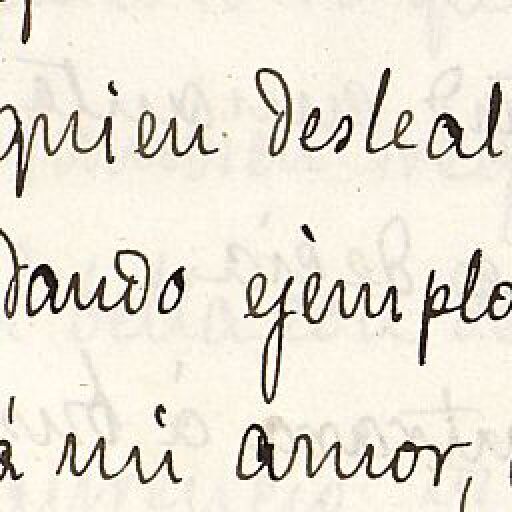 quien desleal
dando ejemplo
á mi amor,